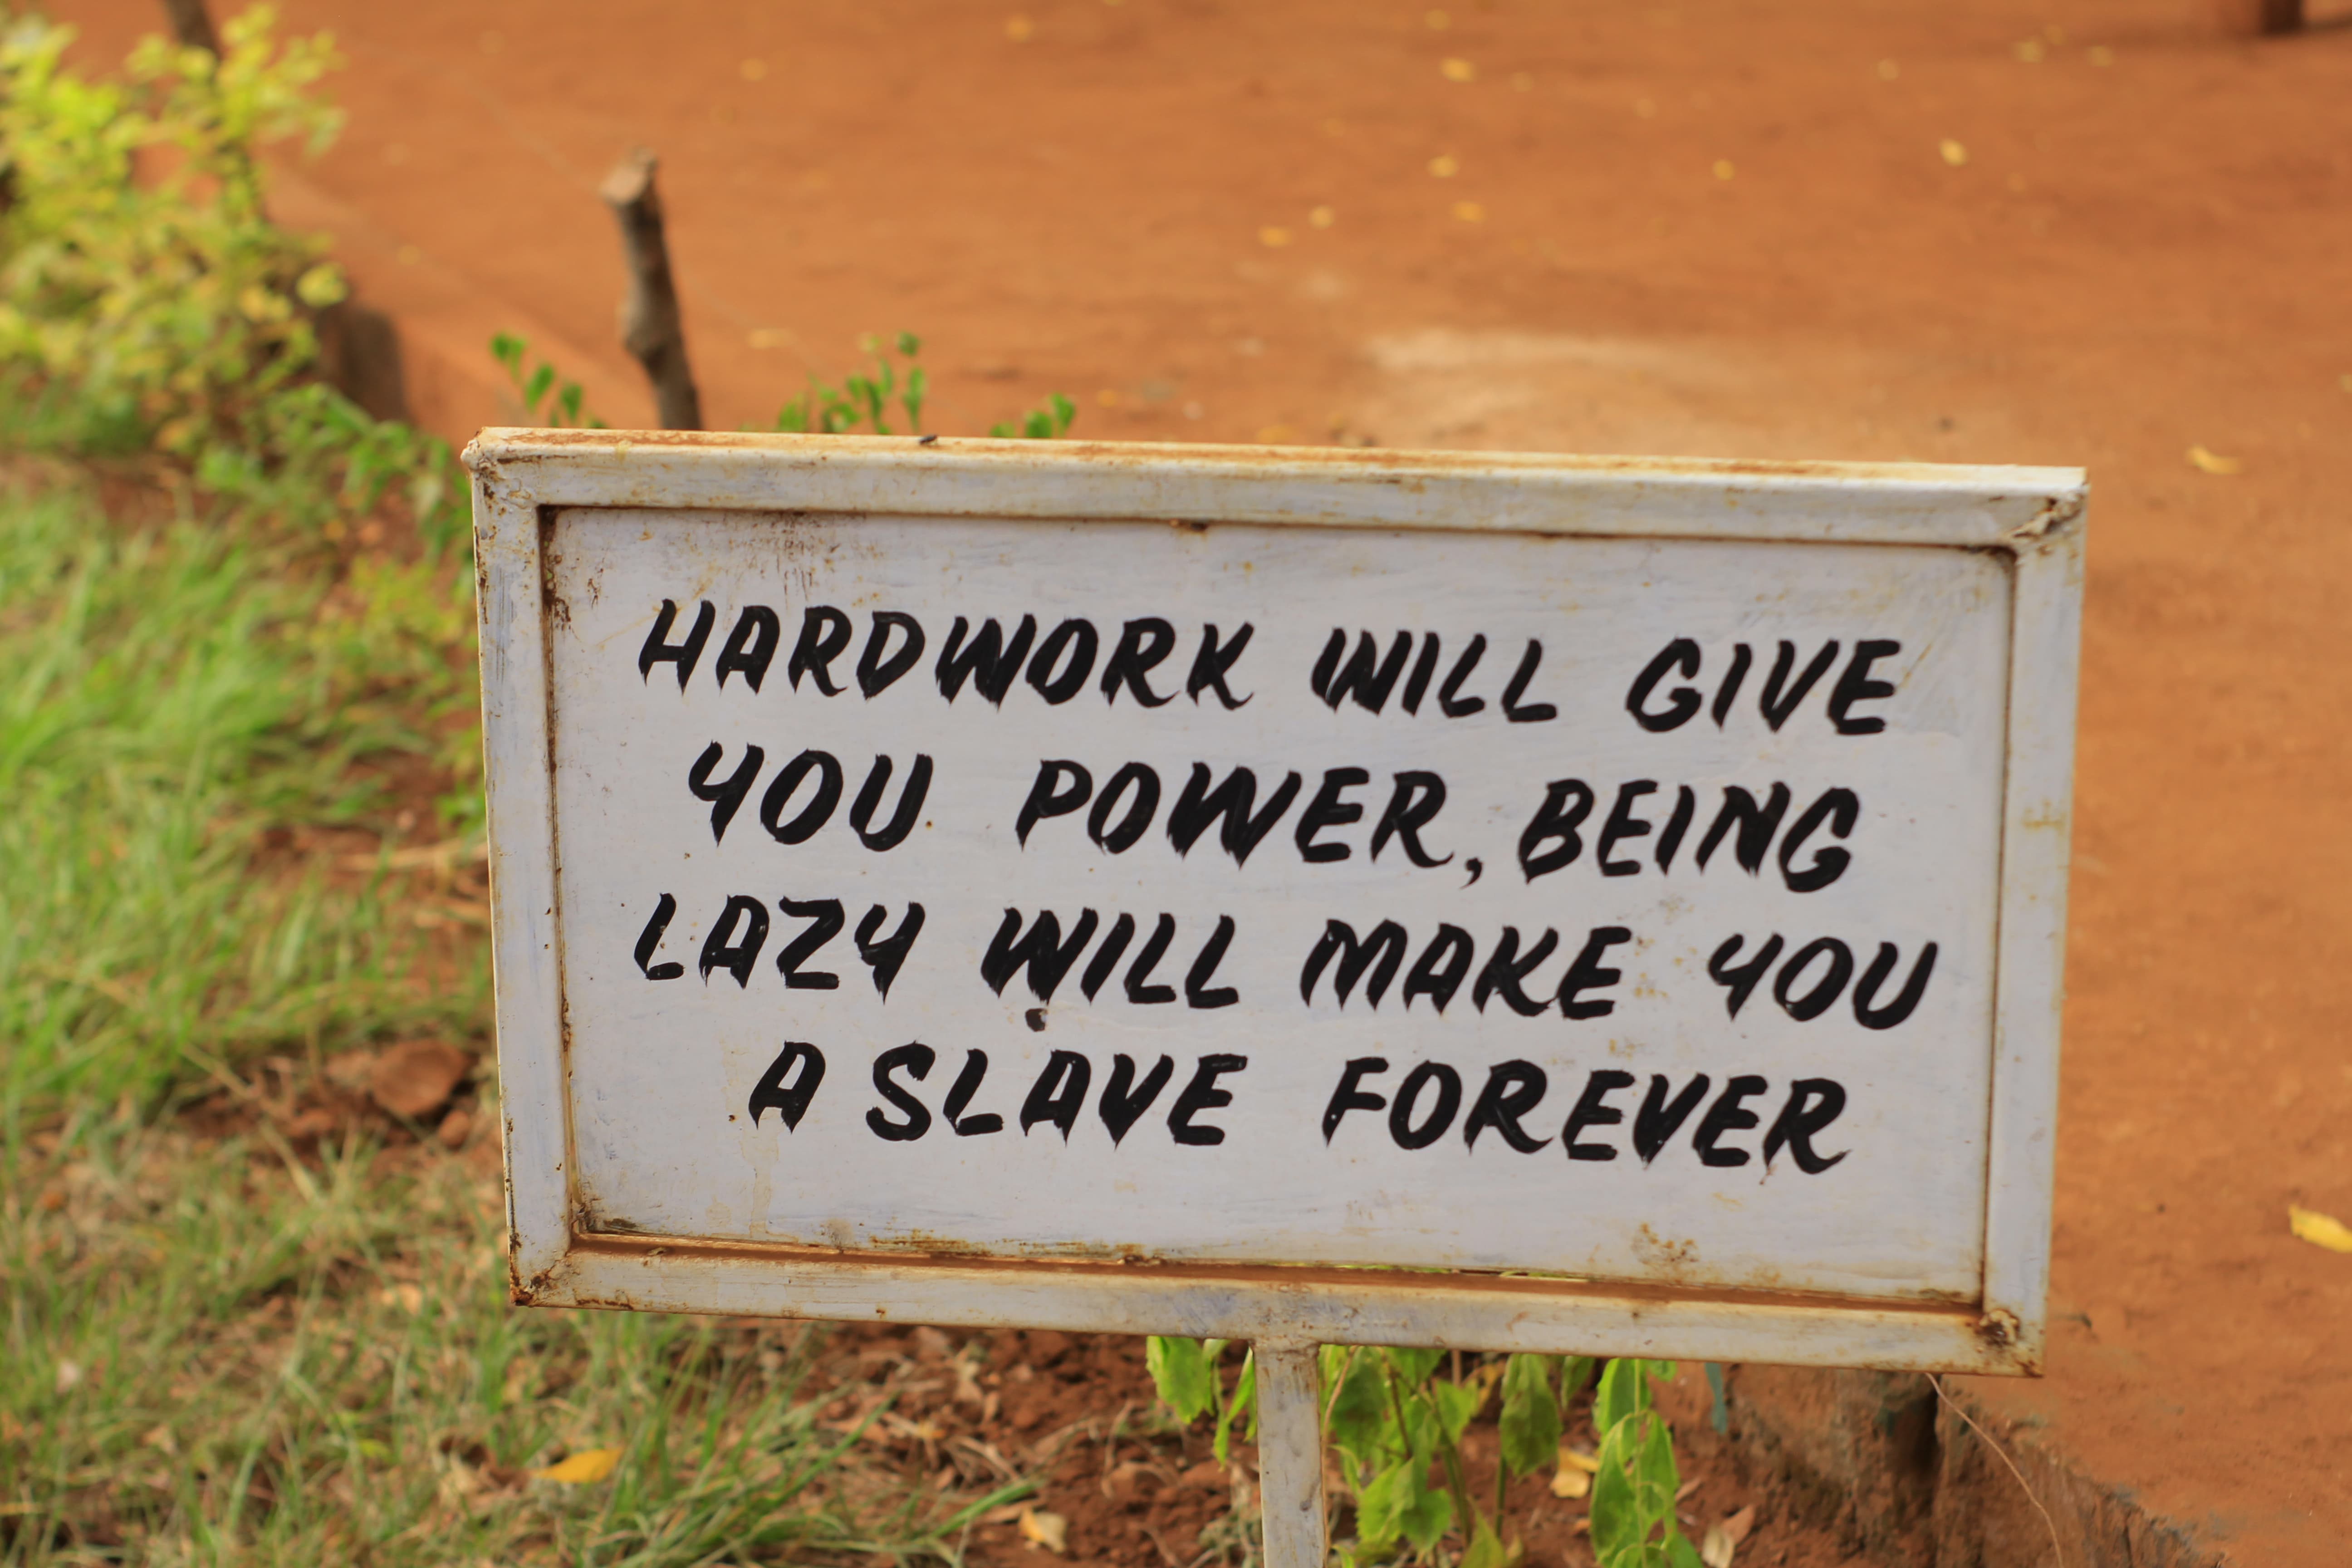 HARDWORK WILL GIVE
YOU POWER, BEING
LAZY WILL MAKE YOU
A SLAVE FOREVER